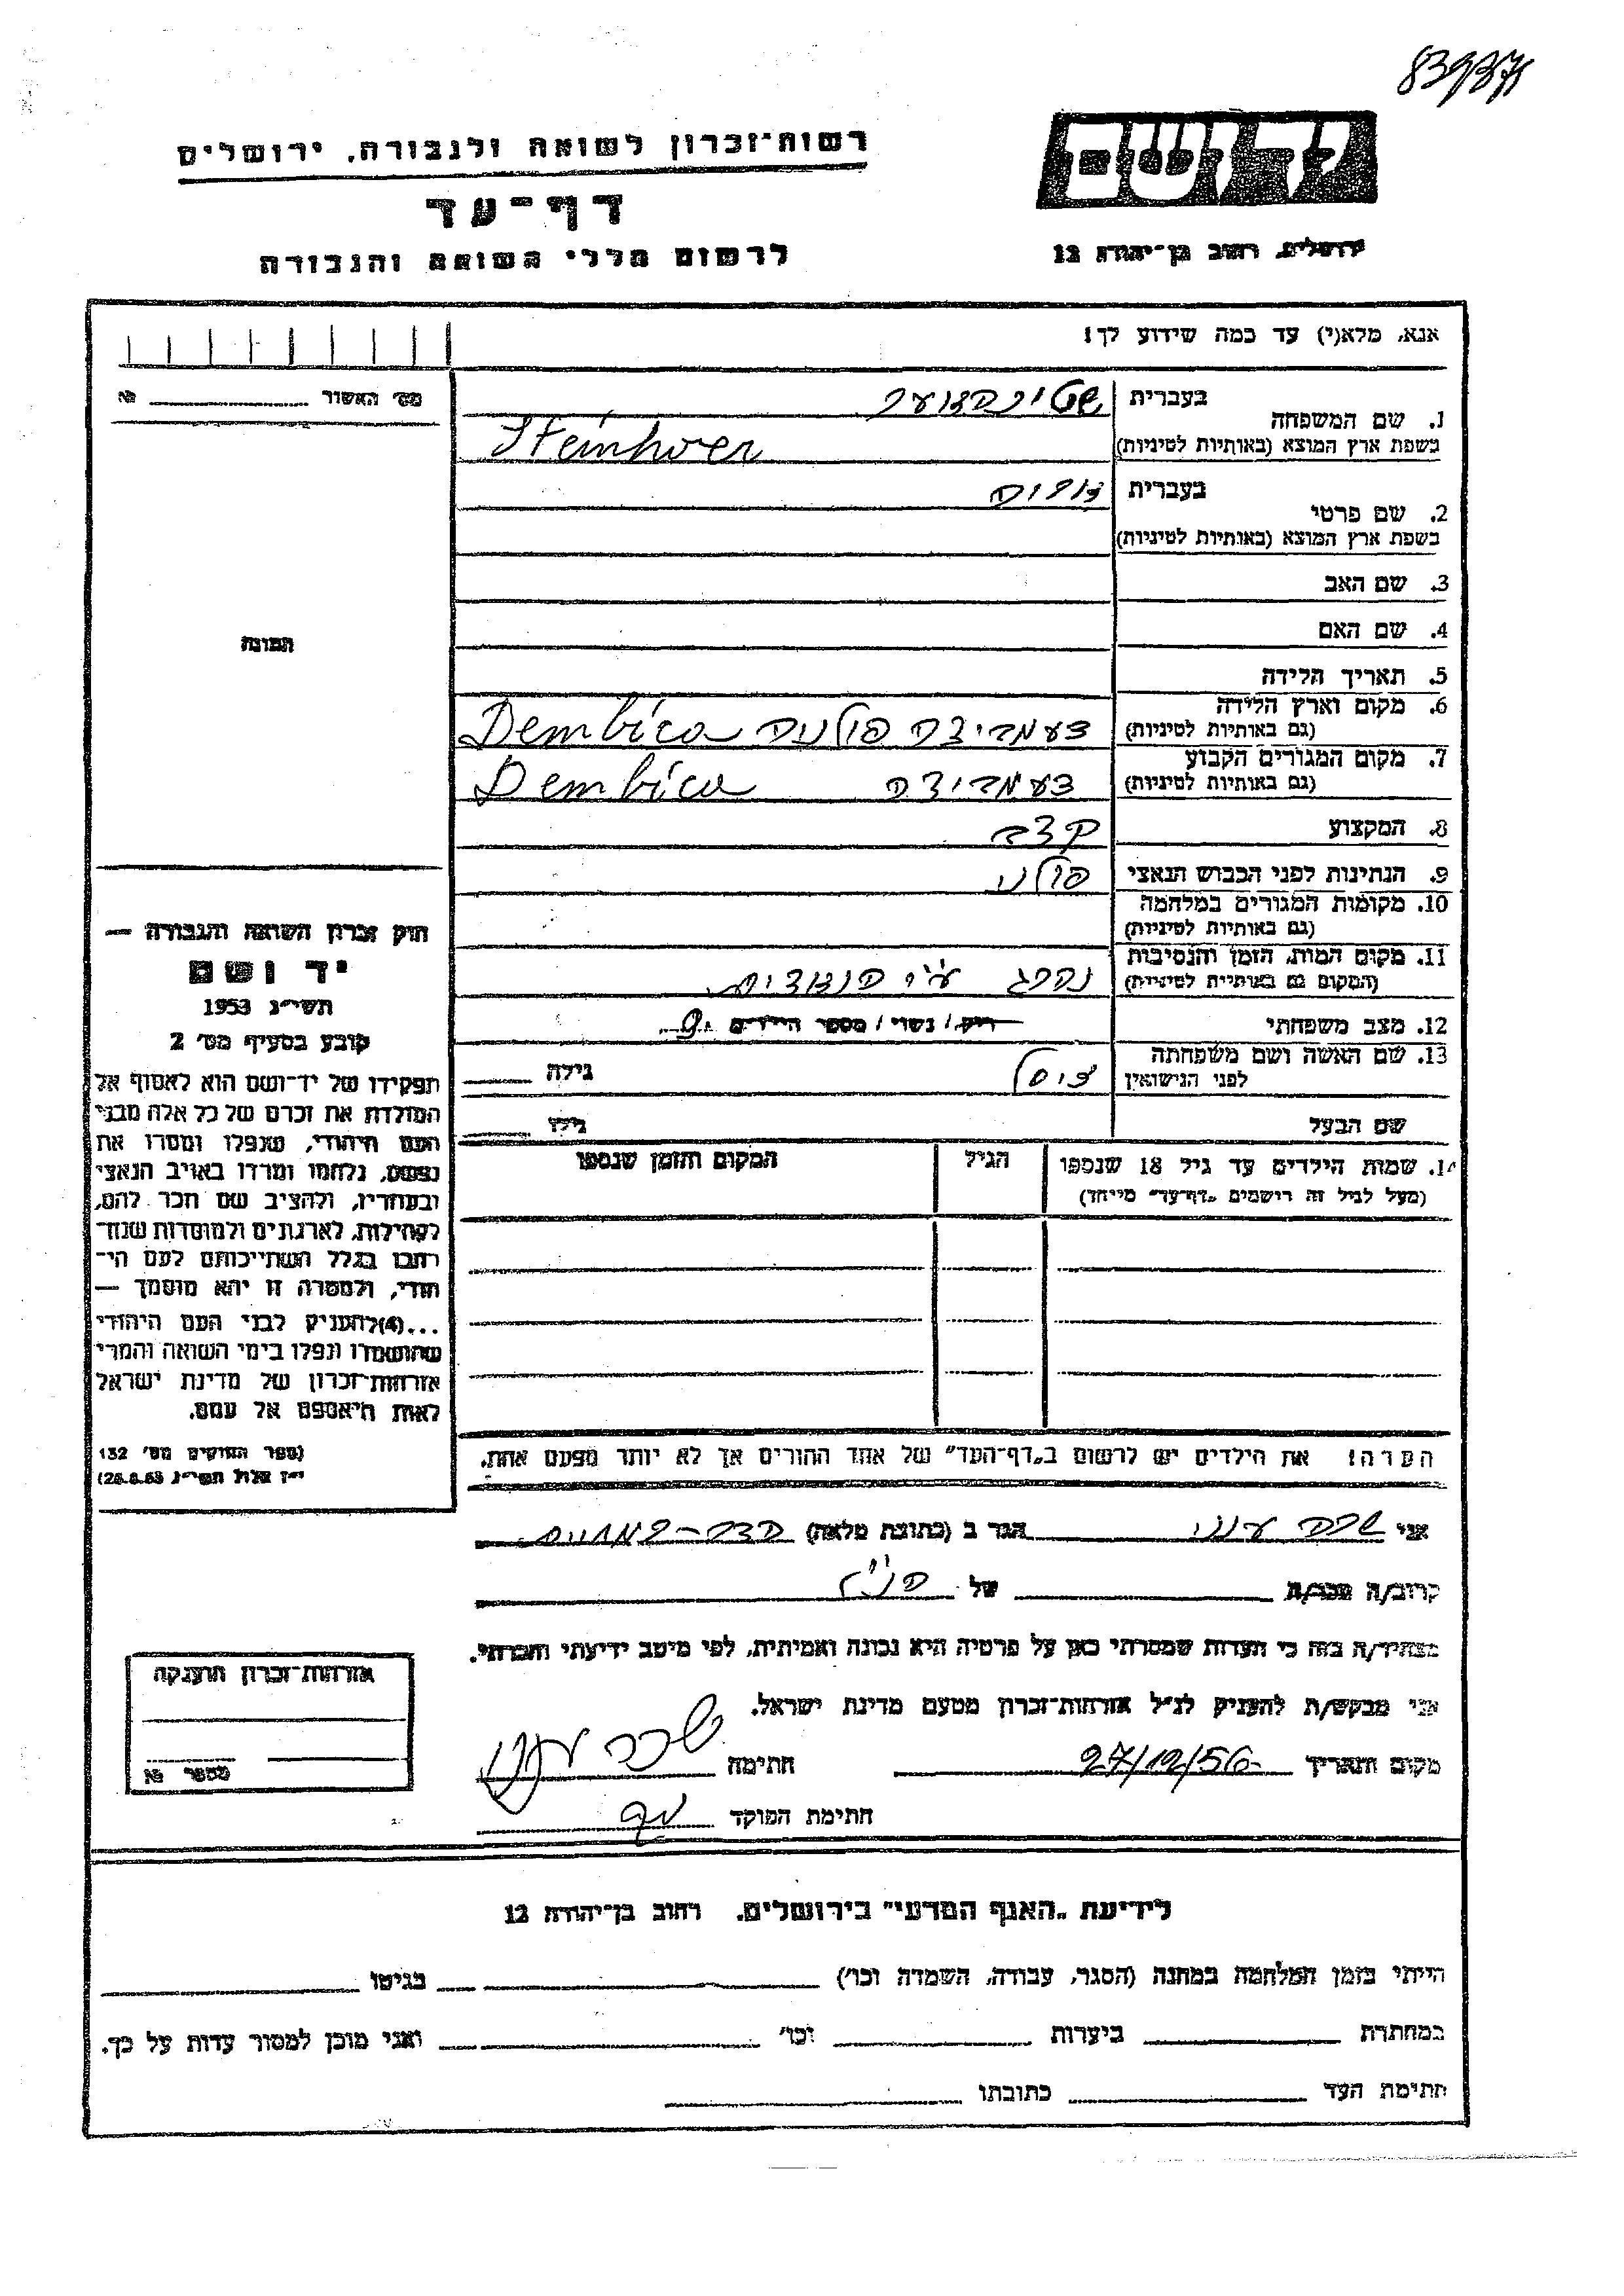 יד ושם
ירושלים, רחוב בן־יהודה 12
רשות־זכרון לשואה ולגבורה, ירושלים
דף־עד
לרשום חללי השואה והגבורה
אנא, מלא(י) עד כמה שידוע לך!
מס׳ האשור № 
1. שם המשפחה
בעברית
בשפת ארץ המוצא (באותיות לטיניות) Steinhoer
2. שם פרטי
בעברית
בשפת ארץ המוצא (באותיות לטיניות)
3. שם האב
4. שם האם
5. תאריך הלידה
6. מקום וארץ הלידה
(גם באותיות לטיניות) דעמביצה פולניה Dembica
7. מקום המגורים הקבוע
(גם באותיות לטיניות) דעמביצה Dembica
8. המקצוע קצב
9. הנתינות לפני הכבוש הנאצי פולני
10. מקומות המגורים במלחמה
(גם באותיות לטיניות)
11. מקום המות, הזמן והנסיבות
(המקום גם באותיות לטיניות) נהרג ע״י הנאצים
12. מצב משפחתי רווק / נשוי / מספר הילדים 9
13. שם האשה ושם משפחתה
לפני הנישואין גילה
שם הבעל גילו
14. שמות הילדים עד גיל 18 שנספו
(מעל לגיל זה רושמים „דף־עד״ מיוחד)
הגיל
המקום והזמן שנספו
הערה! את הילדים יש לרשום ב„דף־העד״ של אחד ההורים אך לא יותר מפעם אחת.
תמונה
חוק זכרון השואה והגבורה —
יד ושם
תשי״ג 1953
קובע בסעיף מס׳ 2
תפקידו של יד־ושם הוא לאסוף אל
המולדת את זכרם של כל אלה מבני
העם היהודי, שנפלו ומסרו את
נפשם, נלחמו ומרדו באויב הנאצי
ובעוזריו, ולהציב שם וזכר להם,
לקהילות, לארגונים ולמוסדות שנח־
רבו בגלל השתייכותם לעם הי־
הודי, ולמטרה זו יהא מוסמך —
...(4) להעניק לבני העם היהודי
שהושמדו ונפלו בימי השואה והמרי
אזרחות־זכרון של מדינת ישראל
לאות היאספם אל עמם.
(ספר החוקים מס׳ 132
י״ז אלול תשי״ג 28.8.53)
אני הגר ב (כתובת מלאה)
קרוב/ה מכר/ה של הנ״ל
מצהיר/ה בזה כי העדות שמסרתי כאן על פרטיה היא נכונה ואמיתית, לפי מיטב ידיעתי והכרתי.
אני מבקש/ת להעניק לנ״ל אזרחות־זכרון מטעם מדינת ישראל.
מקום ותאריך 27/12/56 חתימה
חתימת הפוקד
אזרחות־זכרון הוענקה
מספר №
לידיעת „האגף המדעי״ בירושלים, רחוב בן־יהודה 12
הייתי בזמן המלחמה במחנה (הסגר, עבודה, השמדה וכו׳) בגיטו
במחתרת ביערות וכו׳ ואני מוכן למסור עדות על כך.
חתימת העד כתובתו